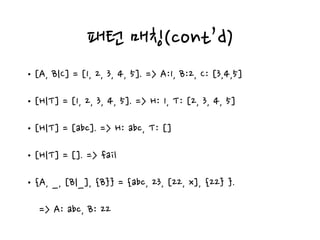 패턴 매칭(cont'd)
• [A, B|C] = [1, 2, 3, 4, 5]. => A:1, B:2, C: [3,4,5]
• [H|T] = [1, 2, 3, 4, 5]. => H: 1, T: [2, 3, 4, 5]
• [H|T] = [abc]. => H: abc, T: []
• [H|T] = []. => fail
• {A, _, [B|_], {B}} = {abc, 23, [22, x], {22} }.
=> A: abc, B: 22